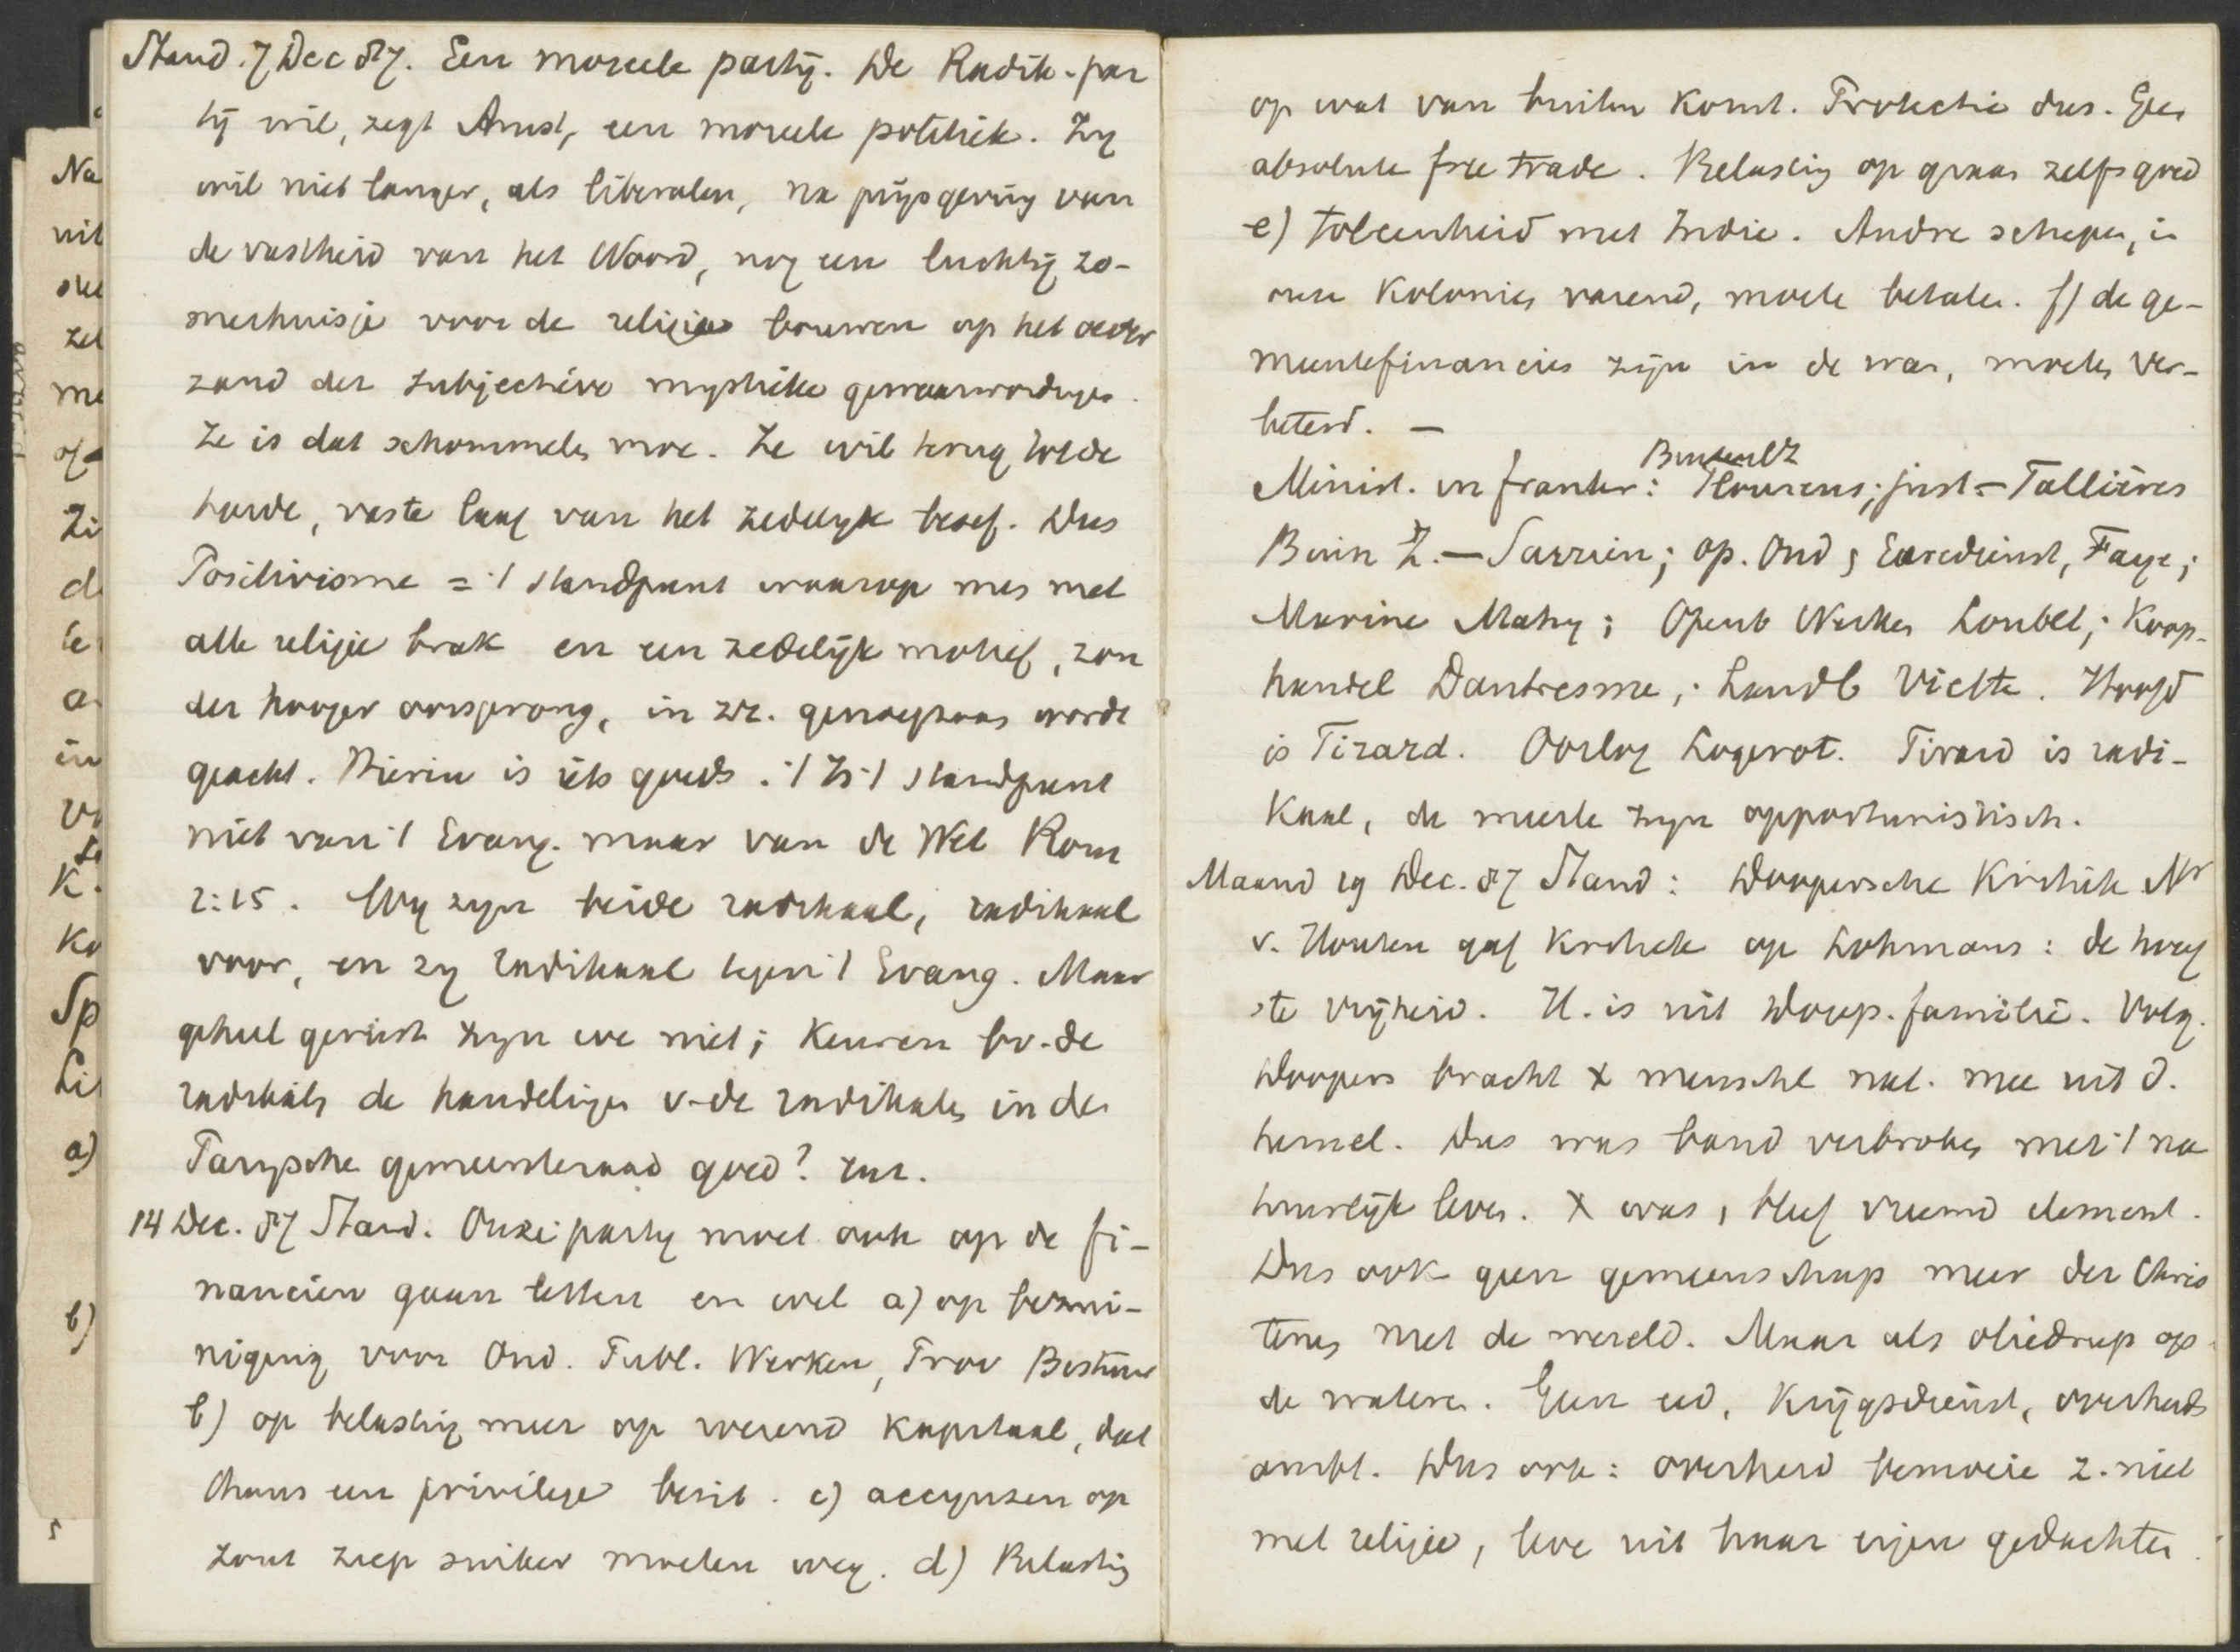 Stand. 7 Dec 87. Een moreele partij. De Radik. par
tij wil, zegt Amst, een moreele politiek. Zy
wil niet langer, als liberalen, na prijsgeving van
de vastheid van het Woord, nog een luchtig zo-
merhuisje voor de religie bouwen op het
zand der subjectieve mystieke gewaarwordingen.
Ze is dat schommelen moe. Ze wil terug tot de
harde, vaste laag van het zedelyk besef. Dus
Positivisme = 't standpunt waarop men met
alle religie brak en een zedelijk motief, zon
der hooger oorsprong, in zr. genoegzaam wordt
geacht. Hierin is iets goeds. 't Is 't standpunt
niet van 't Evang. maar van de Wet Rom
2:15. Wy zyn beide radikaal, radikaal
voor, en zy radikaal tegen 't Evang. Maar
geheel gerust zyn we niet; keuren bv. de
radikals de handelingen v. de radikalen in den
Parijsche gemeenteraad goed? enz.
14 Dec. 87 Stand. Onze party moet ook op de fi-
nanciën gaan letten en wel a) op bezui-
niging voor Ond. Publ. Werken, Prov Bestuur
b) op belasting meer op roerend kapitaal, dat
thans een privilege bezit. c) accynsen op
zout zeep suiker moeten weg. d) Belasting
op wat van buiten komt. Protectie dus. Geen
absolute free trade. Belasting op graan zelfs goed
e) toleenheid met Indie. Andre schepen, in
onze Kolonies varend, moete betalen. f) de ge-
meentefinancies zijn in de war, moeten ver-
beterd. —
Minist. in Frankr: Buitenl Z Flourens; just = Fallières
Binn Z. — Sarrien; op. Ond & Eeredienst, Faye;
Marine Mahy; Openb Werken Loubet; Koop-
handel Dautresme; Landb Viette. Hoofd
is Tirard. Oorlog Logerot. Tirard is radi-
kaal, de meeste zyn opportunistisch.
Maand 19 Dec. 87 Stand: Doopersche Kritiek Mr
v. Houten gaf kritiek op Lohmans: de hoog
ste vrijheid. H. is uit Doop. familie. Volg.
Doopers bracht X menschel nat. mee uit d.
hemel. Dus was band verbroken met 't na
tuurlijk leven. X was, bleef vreemd element.
Dus ook geen gemeenschap meer der Chris
tenen met de wereld. Maar als oliedrup op
de wateren. Geen eed, Krijgsdienst, overheids
ambt. Dus ook: overheid bemoeie z. niet
met religie, leve uit haar eigen gedachten.